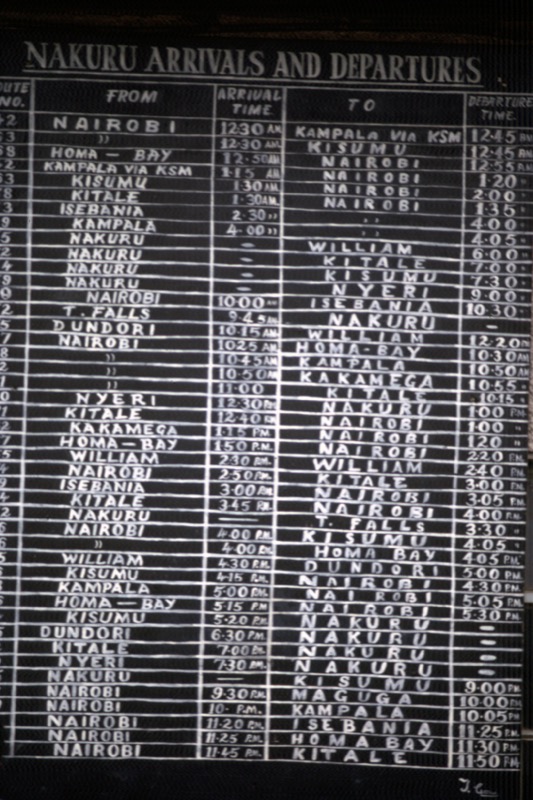 NAKURU ARRIVALS AND DEPARTURES
NO. FROM ARRIVAL TIME TO DEPARTURE TIME
NAIROBI 12·30 AM KAMPALA VIA KSM 12·45 AM
" 12·30 AM KISUMU 12·45 AM
HOMA — BAY 12·50AM NAIROBI 12·55 PM
KAMPALA VIA KSM 1·15 AM NAIROBI 1·20 "
KISUMU 1·30AM NAIROBI 2·00 "
KITALE 1·30AM NAIROBI 1·35 "
ISEBANIA 2·30 " " 4·00 "
KAMPALA 4·00 " " 4·05 "
NAKURU — WILLIAM 6·00 "
NAKURU — KITALE 7·00 "
NAKURU — KISUMU 7·30 "
NAKURU — NYERI 9·00 "
NAIROBI 10·00 AM ISEBANIA 10·30 "
T. FALLS 9·45AM NAKURU —
DUNDORI 10·15 AM WILLIAM 12·20PM
NAIROBI 10·25 AM HOMA-BAY 10·30AM
" 10·45 AM KAMPALA 10·50AM
" 10·50 AM KAKAMEGA 10·55 "
" 11·00 KITALE 10·15 "
NYERI 12·30PM NAKURU 1·00 PM
KITALE 12·40 PM NAIROBI 1·00 "
KAKAMEGA 1·15 P.M. NAIROBI 1·20 "
HOMA — BAY 1·50 P.M. NAIROBI 2·20 P.M.
WILLIAM 2·30 P.M. WILLIAM 2·40 P.M.
NAIROBI 2·50 P.M. KITALE 3·00 P.M.
ISEBANIA 3·00 P.M. NAIROBI 3·05 P.M.
KITALE 3·45 P.M. NAIROBI 4·00 P.M.
NAKURU — T. FALLS 3·30 "
NAIROBI 4·00 P.M. KISUMU 4·05 "
" 4·00 P.M. HOMA BAY 4·05 P.M.
WILLIAM 4·30 P.M. DUNDORI 5·00 P.M.
KISUMU 4·15 P.M. NAIROBI 4·30 P.M.
KAMPALA 5·00 P.M. NAIROBI 5·05 P.M.
HOMA — BAY 5·15 P.M. NAIROBI 5·30 P.M.
KISUMU 5·20 P.M. NAKURU —
DUNDORI 6·30 P.M. NAKURU —
KITALE 7·00 P.M. NAKURU —
NYERI 7·30 P.M. NAKURU —
NAKURU — KISUMU 9·00 P.M.
NAIROBI 9·30 P.M. MAGUGA 10·00 P.M.
NAIROBI 10· P.M. KAMPALA 10·05 PM
NAIROBI 11·20 P.M. ISEBANIA 11·25 P.M.
NAIROBI 11·25 P.M. HOMA BAY 11·30 PM
NAIROBI 11·45 P.M. KITALE 11·50 PM